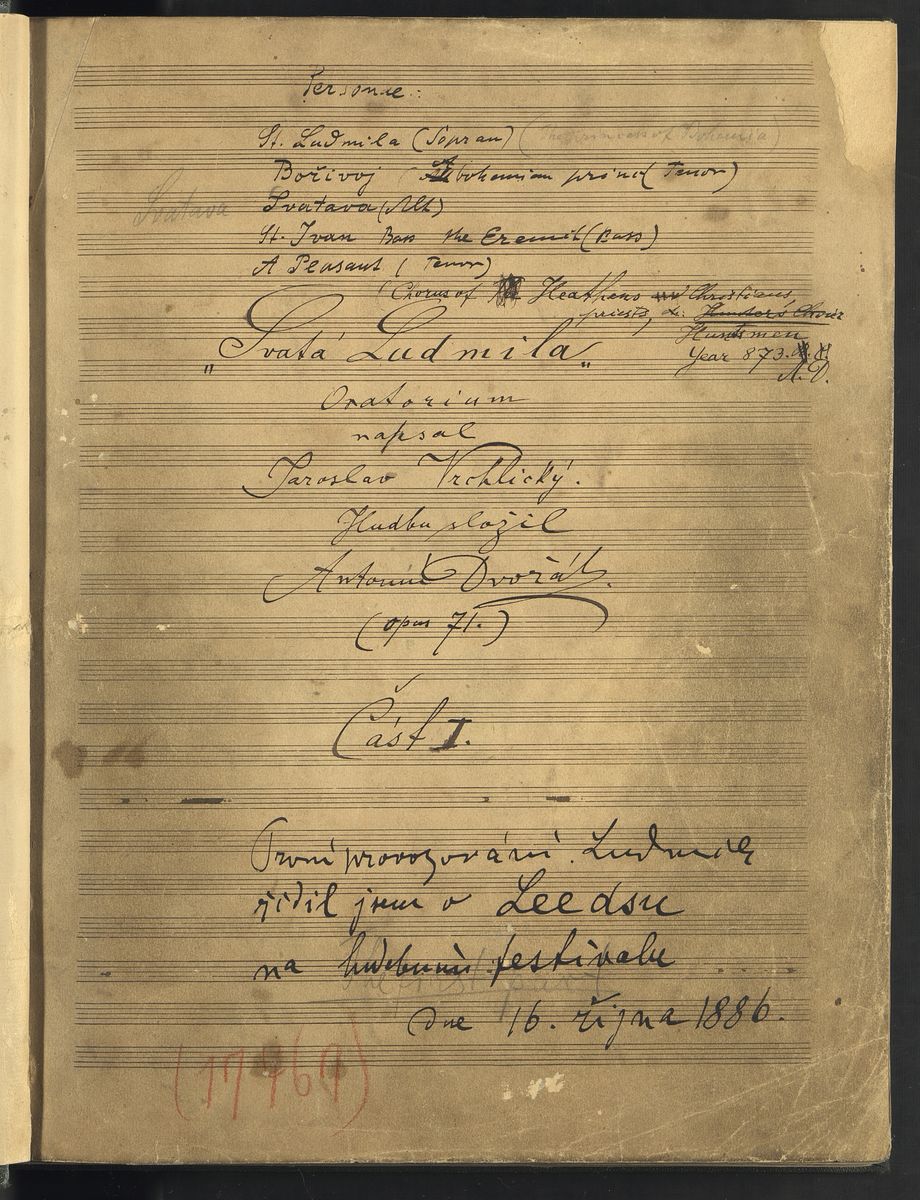 Personae:
St. Ludmila (Sopran) (The princess of Bohemia)
Bořivoj (A bohemian prince (Tenor)
Svatava Svatava (Alt)
St. Ivan Bass the Eremit (Bass)
A Peasant (Tenor)
(Chorus of Heathens Christians,
priests, Hunter's Choir
Huntsmen
Year 873.
A. D.
"Svatá Ludmila"
Oratorium
napsal
Jaroslav Vrchlický.
Hudbu složil
Antonín Dvořák.
(opus 71.)
Část I.
První provozování Ludmily
řídil jsem v Leedsu
na hudebním festivalu
dne 16. října 1886.